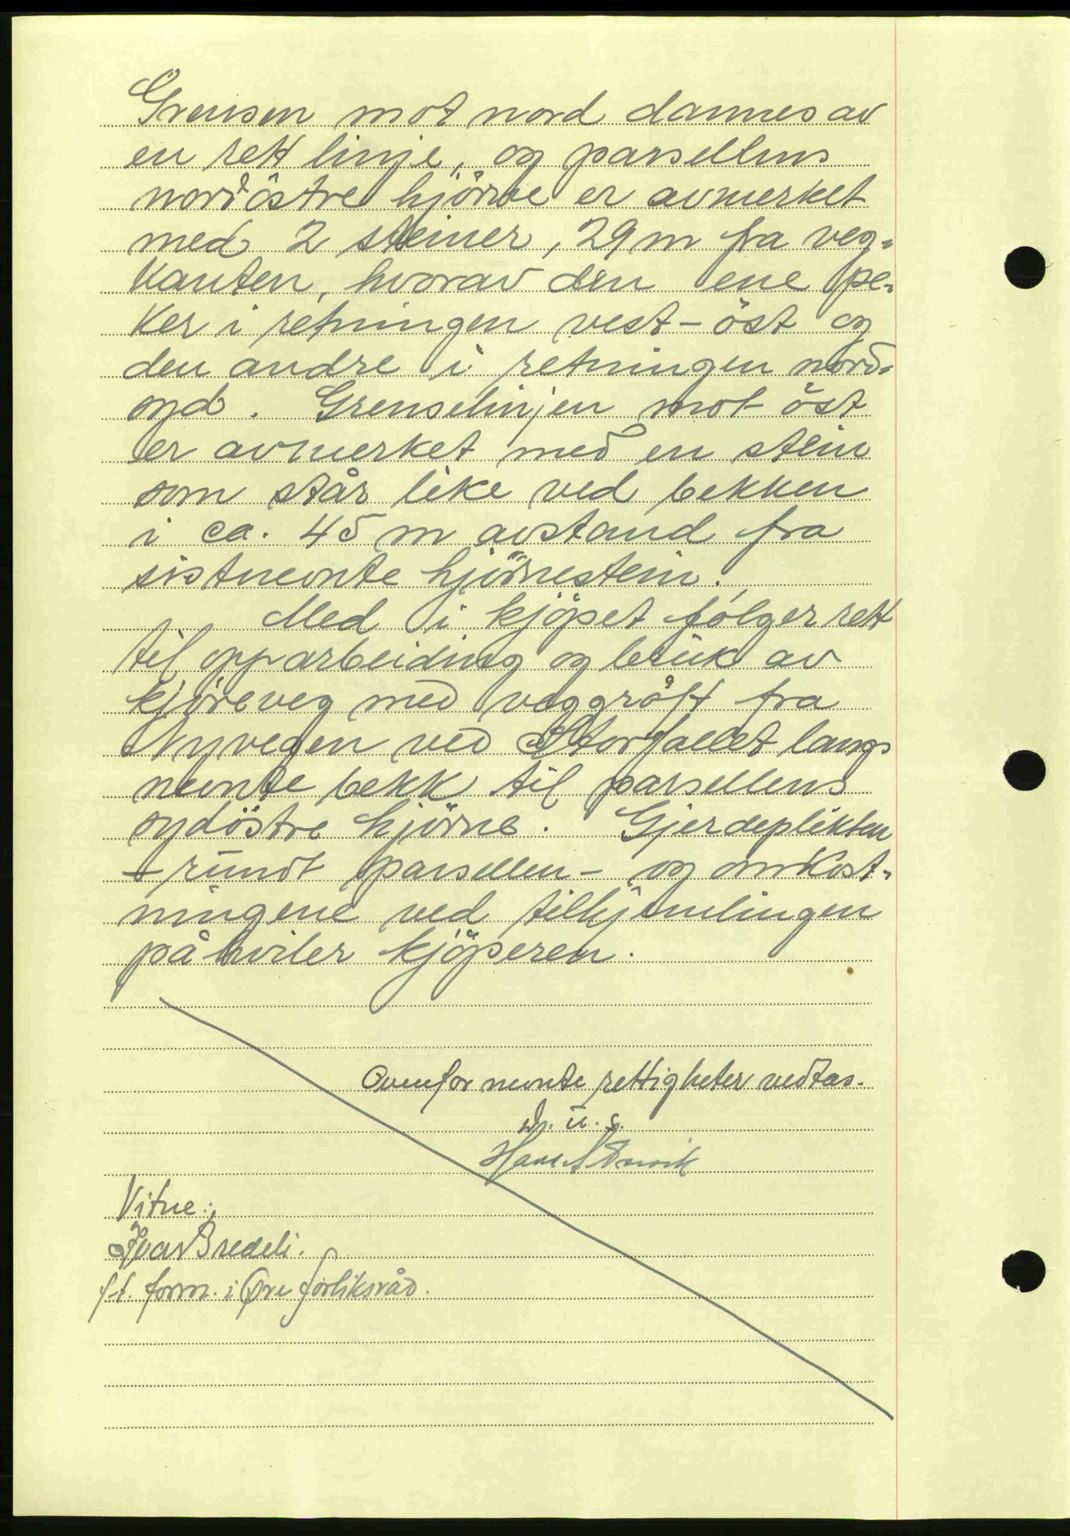 Grensen mot nord dannes av
en rett linje, og parsellens
nordöstre hjörne er avmerket
med 2 steiner, 29 m fra veg-
kanten, hvorav den ene pe-
ker i retningen vest – öst og
den andre i retningen nord-
syd. Grenselinjen mot öst
er avmerket med en stein
som står like ved bekken
i ca. 45 m avstand fra
sistnevnte hjörnestein.
Med i kjöpet fölger rett
til opparbeiding og bruk av
kjöreveg med veggröft fra
Nyvegen ved Storfallet langs
nevnte bekk til parsellens
sydöstre hjörne. Gjerdeplikten
– rundt parsellen – og omkost-
ningene ved tilhjemlingen
påhviler kjöperen.
Ovenfor nevnte rettigheter vedtas.
D. u. s.
Vitne:
Ivar Bredeli.
f.t. form. i Øre forliksråd.